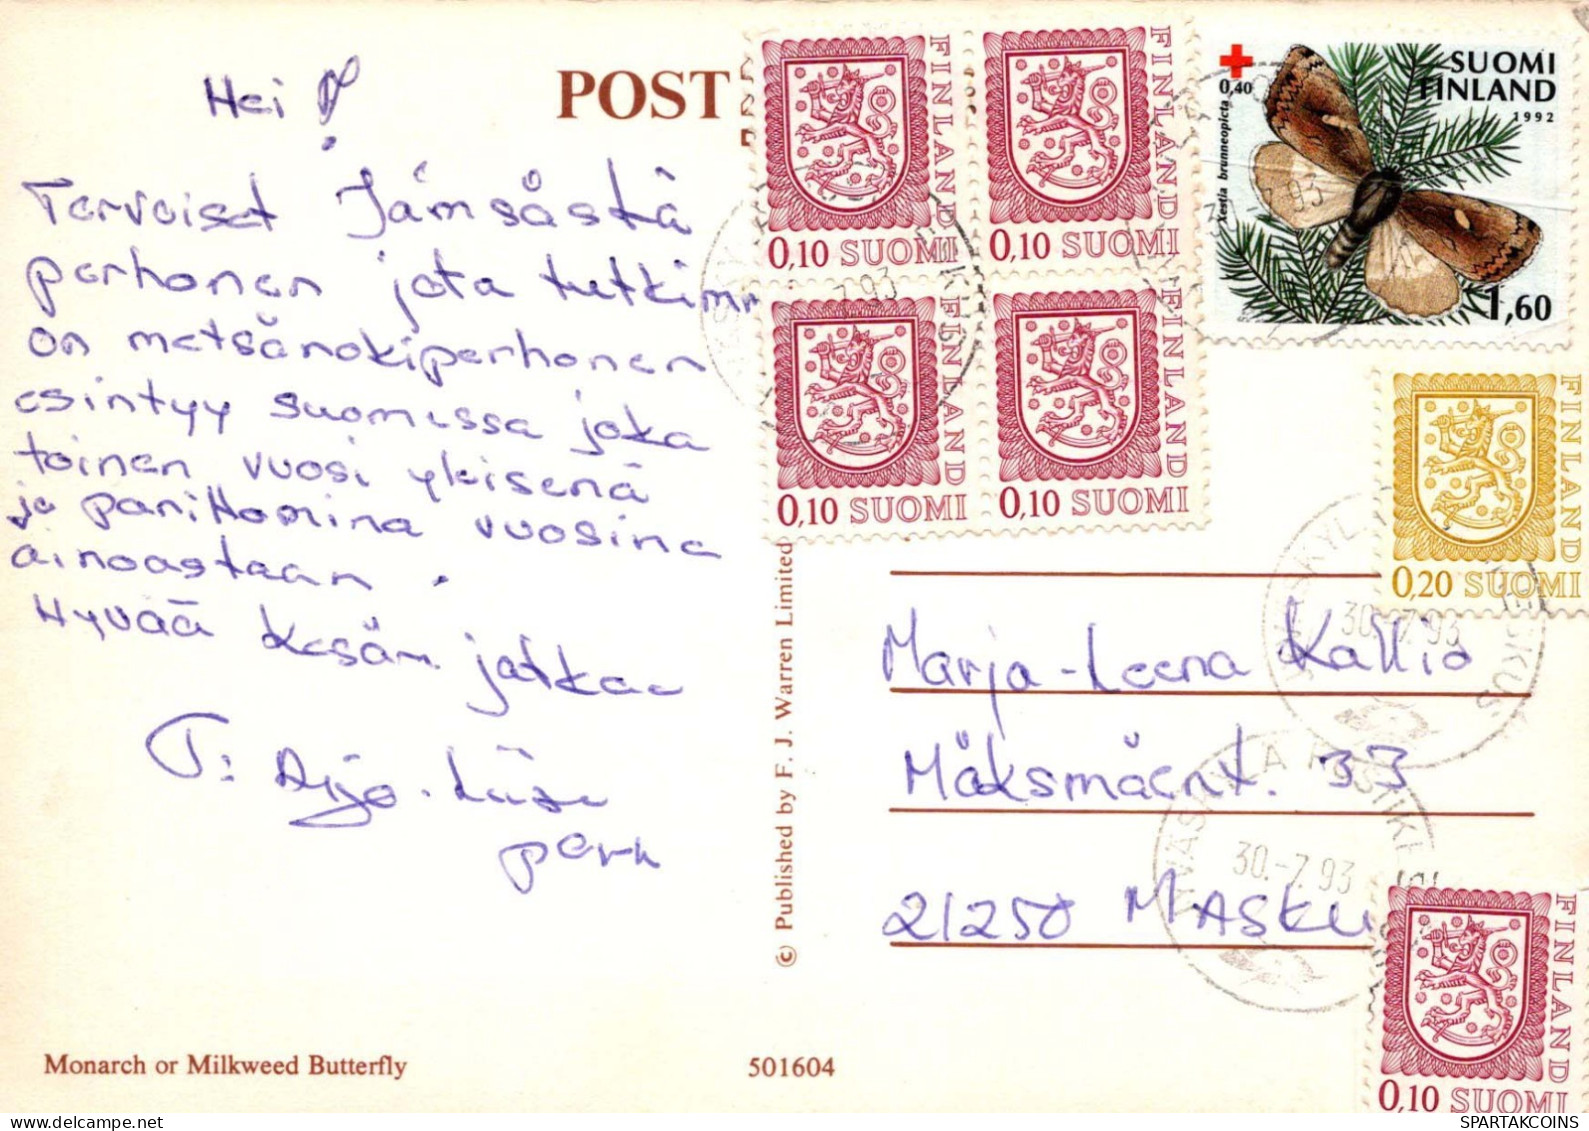 POST
Hei!
Terveiset Jämsästä
perhonen jota tutkimme
on metsänokiperhonen
esintyy suomessa joka
toinen vuosi yksisenä
ja parittomina vuosina
ainoastaan.
Hyvää Kesän jatkoa
T: Aija-Liisa
perh
Monarch or Milkweed Butterfly
501604
© Published by F. J. Warren Limited
FINLAND
0,10 SUOMI
FINLAND
0,10 SUOMI
FINLAND
0,10 SUOMI
FINLAND
0,10 SUOMI
0,40
Xestia brunneopicta
SUOMI
FINLAND
1992
1,60
FINLAND
0,20 SUOMI
30.-7.93
Marja-Leena Kallio
Mäksmäent. 33
30.-7.93
21250 MASKU
FINLAND
0,10 SUOMI
WWW.HIPPOSTCARD.COM/STORE
SPARTAKCOINS